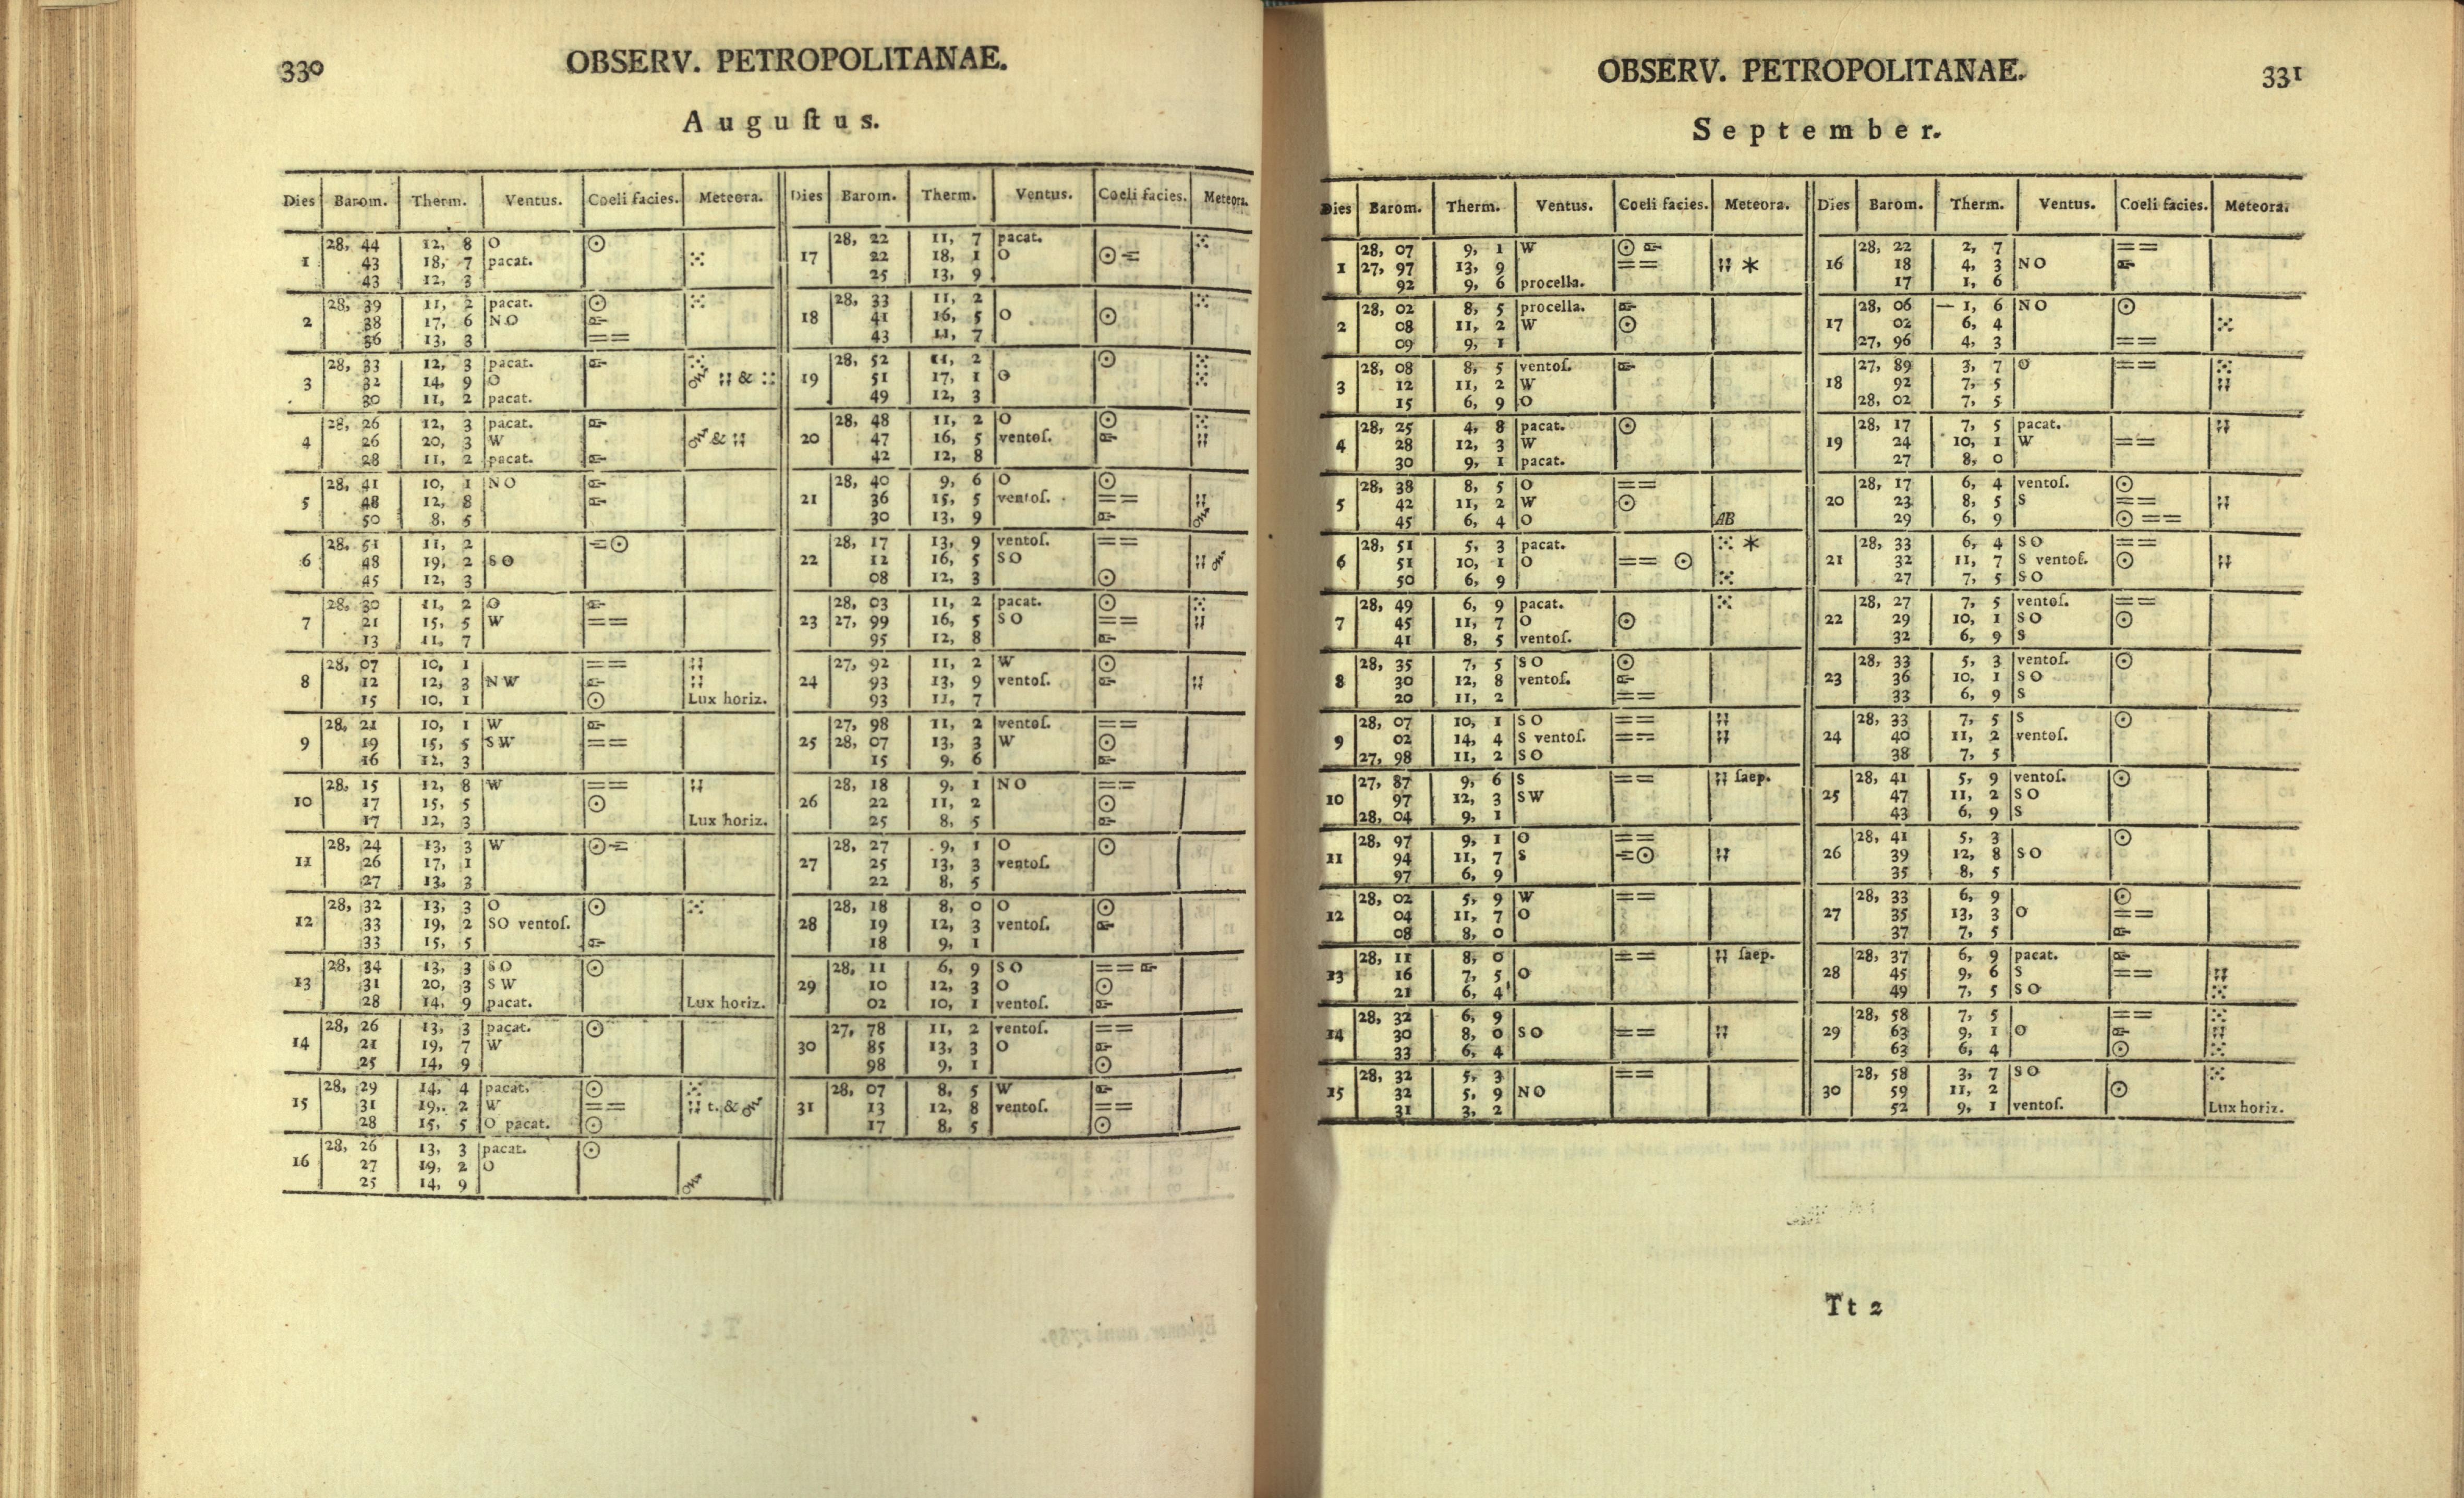 330
OBSERV. PETROPOLITANAE.
Auguſtus.
Dies Barom. Therm. Ventus. Coeli facies. Meteora. Dies Barom. Therm. Ventus. Coeli facies. Meteora.
28, 44 12, 8 O ☉ 28, 22 11, 7 pacat. ⁙
1 43 18, 7 pacat. ⁙ 17 22 18, 1 O ☉
43 12, 3 25 13, 9
28, 39 11, 2 pacat. ☉ ⁙ 28, 33 11, 2 ⁙
2 38 17, 6 NO 18 41 16, 5 O ☉
36 13, 3 == 43 11, 7
28, 33 12, 3 pacat. ⁙ 28, 52 11, 2 ☉ ⁙
3 32 14, 9 O & 19 51 17, 1 O ⁙
30 11, 2 pacat. 49 12, 3
28, 26 12, 3 pacat. 28, 48 11, 2 O ☉ ⁙
4 26 20, 3 W & 20 47 16, 5 ventoſ.
28 11, 2 pacat. 42 12, 8
28, 41 10, 1 NO 28, 40 9, 6 O ☉
5 48 12, 8 21 36 15, 5 ventoſ. ==
50 8, 5 30 13, 9
28, 51 11, 2 ☉ 28, 17 13, 9 ventoſ. ==
6 48 19, 2 SO 22 12 16, 5 SO
45 12, 3 08 12, 3 ☉
28, 30 11, 2 O 28, 03 11, 2 pacat. ☉ ⁙
7 21 15, 5 W == 23 27, 99 16, 5 SO ==
13 11, 7 95 12, 8
28, 07 10, 1 == 27, 92 11, 2 W ☉
8 12 12, 3 NW 24 93 13, 9 ventoſ.
15 10, 1 ☉ Lux horiz. 93 11, 7
28, 21 10, 1 W 27, 98 11, 2 ventoſ. ==
9 19 15, 5 SW == 25 28, 07 13, 3 W ☉
16 12, 3 15 9, 6
28, 15 12, 8 W == 28, 18 9, 1 NO ==
10 17 15, 5 ☉ 26 22 11, 2 ☉
17 12, 3 Lux horiz. 25 8, 5
28, 24 13, 3 W ☉ 28, 27 9, 1 O ☉
11 26 17, 1 27 25 13, 3 ventoſ.
27 13, 3 22 8, 5
28, 32 13, 3 O ☉ ⁙ 28, 18 8, 0 O ☉
12 33 19, 2 SO ventoſ. 28 19 12, 3 ventoſ.
33 15, 5 18 9, 1
28, 34 13, 3 SO ☉ 28, 11 6, 9 SO ==
13 31 20, 3 SW 29 10 12, 3 O ☉
28 14, 9 pacat. Lux horiz. 02 10, 1 ventoſ.
28, 26 13, 3 pacat. ☉ 27, 78 11, 2 ventoſ. ==
14 21 19, 7 W 30 85 13, 3 O
25 14, 9 98 9, 1 ☉
28, 29 14, 4 pacat. ☉ ⁙ 28, 07 8, 5 W
15 31 19, 2 W == t. & 31 13 12, 8 ventoſ. ==
28 15, 5 O pacat. ☉ 17 8, 5 ☉
28, 26 13, 3 pacat. ☉
16 27 19, 2 O
25 14, 9
OBSERV. PETROPOLITANAE.
331
September.
Dies Barom. Therm. Ventus. Coeli facies. Meteora. Dies Barom. Therm. Ventus. Coeli facies. Meteora.
28, 07 9, 1 W ☉ 28, 22 2, 7 ==
1 27, 97 13, 9 == * 16 18 4, 3 NO
92 9, 6 procella. 17 1, 6
28, 02 8, 5 procella. 28, 06 — 1, 6 NO ☉
2 08 11, 2 W ☉ 17 02 6, 4 ⁙
09 9, 1 27, 96 4, 3 ==
28, 08 8, 5 ventoſ. 27, 89 3, 7 O == ⁙
3 12 11, 2 W 18 92 7, 5
15 6, 9 O 28, 02 7, 5
28, 25 4, 8 pacat. ☉ 28, 17 7, 5 pacat.
4 28 12, 3 W 19 24 10, 1 W ==
30 9, 1 pacat. 27 8, 0
28, 38 8, 5 O == 28, 17 6, 4 ventoſ. ☉
5 42 11, 2 W ☉ 20 23 8, 5 S ==
45 6, 4 O AB 29 6, 9 ☉ ==
28, 51 5, 3 pacat. ⁙ * 28, 33 6, 4 SO ==
6 51 10, 1 O == ☉ 21 32 11, 7 S ventoſ. ☉
50 6, 9 ⁙ 27 7, 5 SO
28, 49 6, 9 pacat. ⁙ 28, 27 7, 5 ventoſ. ==
7 45 11, 7 O ☉ 22 29 10, 1 SO ☉
41 8, 5 ventoſ. 32 6, 9 S
28, 35 7, 5 SO ☉ 28, 33 5, 3 ventoſ. ☉
8 30 12, 8 ventoſ. 23 36 10, 1 SO
20 11, 2 == 33 6, 9 S
28, 07 10, 1 SO == 28, 33 7, 5 S ☉
9 02 14, 4 S ventoſ. == 24 40 11, 2 ventoſ.
27, 98 11, 2 SO 38 7, 5
27, 87 9, 6 S == ſaep. 28, 41 5, 9 ventoſ. ☉
10 97 12, 3 SW 25 47 11, 2 SO
28, 04 9, 1 43 6, 9 S
28, 97 9, 1 O == 28, 41 5, 3 ☉
11 94 11, 7 S ☉ 26 39 12, 8 SO
97 6, 9 35 8, 5
28, 02 5, 9 W == 28, 33 6, 9 ☉
12 04 11, 7 O 27 35 13, 3 O ==
08 8, 0 37 7, 5
28, 11 8, 0 == ſaep. 28, 37 6, 9 pacat.
13 16 7, 5 O 28 45 9, 6 S ==
21 6, 4 49 7, 5 SO ⁙
28, 32 6, 9 28, 58 7, 5 == ⁙
14 30 8, 0 SO == 29 63 9, 1 O
33 6, 4 63 6, 4 ☉ ⁙
28, 32 5, 3 == 28, 58 3, 7 SO ⁙
15 32 5, 9 NO 30 59 11, 2 ☉
31 3, 2 52 9, 1 ventoſ. Lux horiz.
Tt 2